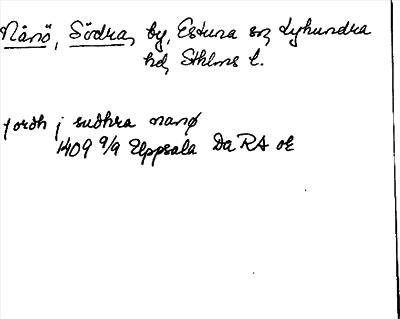 Nånö, Södra, by, Estuna sn, Lyhundra
hd, Sthlms l.
jordh j sudhra nanø
1409 9/9 Uppsala Da RA or